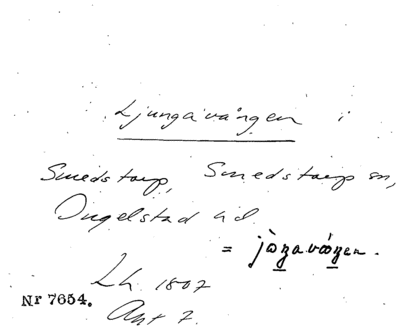 Ljungavången i
Smedstorp, Smedstorp sn,
Ingelstad hd.
= jɷŋavɷŋen.
Lh 1807
Nr 7654.
Akt 7.